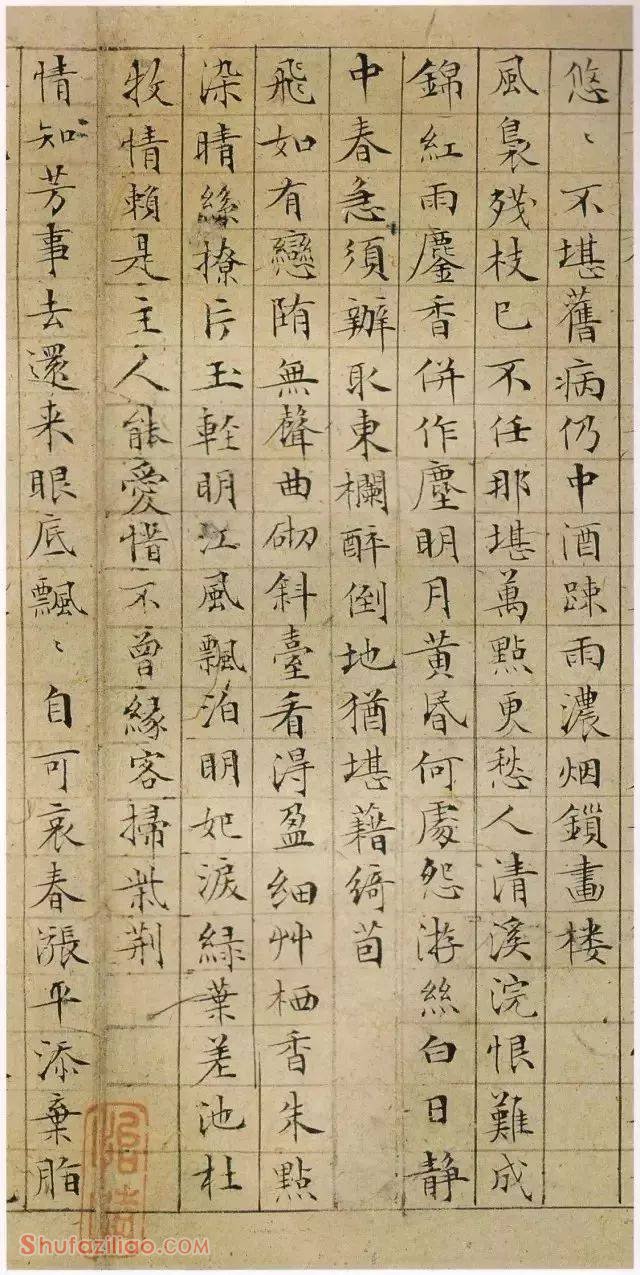 悠〻不堪舊病仍中酒踈雨濃烟鎖畫楼
風裊殘枝已不任那堪萬點更愁人清溪浣恨難成
錦紅雨鏖香併作塵明月黄昏何處怨游絲白日静
中春急須辦取東欄醉倒地猶堪藉綺茵
飛如有戀陏無聲曲砌斜臺看得盈細艸栖香朱點
染晴絲撩片玉輕明江風飄泊明妃淚緑葉差池杜
牧情賴是主人能愛惜不曾緣客掃柴荆
情知芳事去還来眼底飄〻自可哀春漲平添棄脂
Shufaziliao.COM